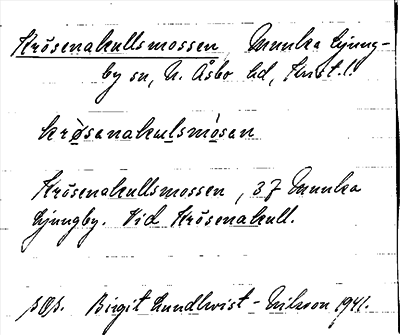 Krösenakullsmossen, Munka Ljung-
by sn, N. Åsbo hd, Krist.l.
krösanakulsmósan
Krösenakullsmossen, 37 Munka
Ljungby. Vid Krösenakull.
Birgit Lundkvist-Nilsson 1941.